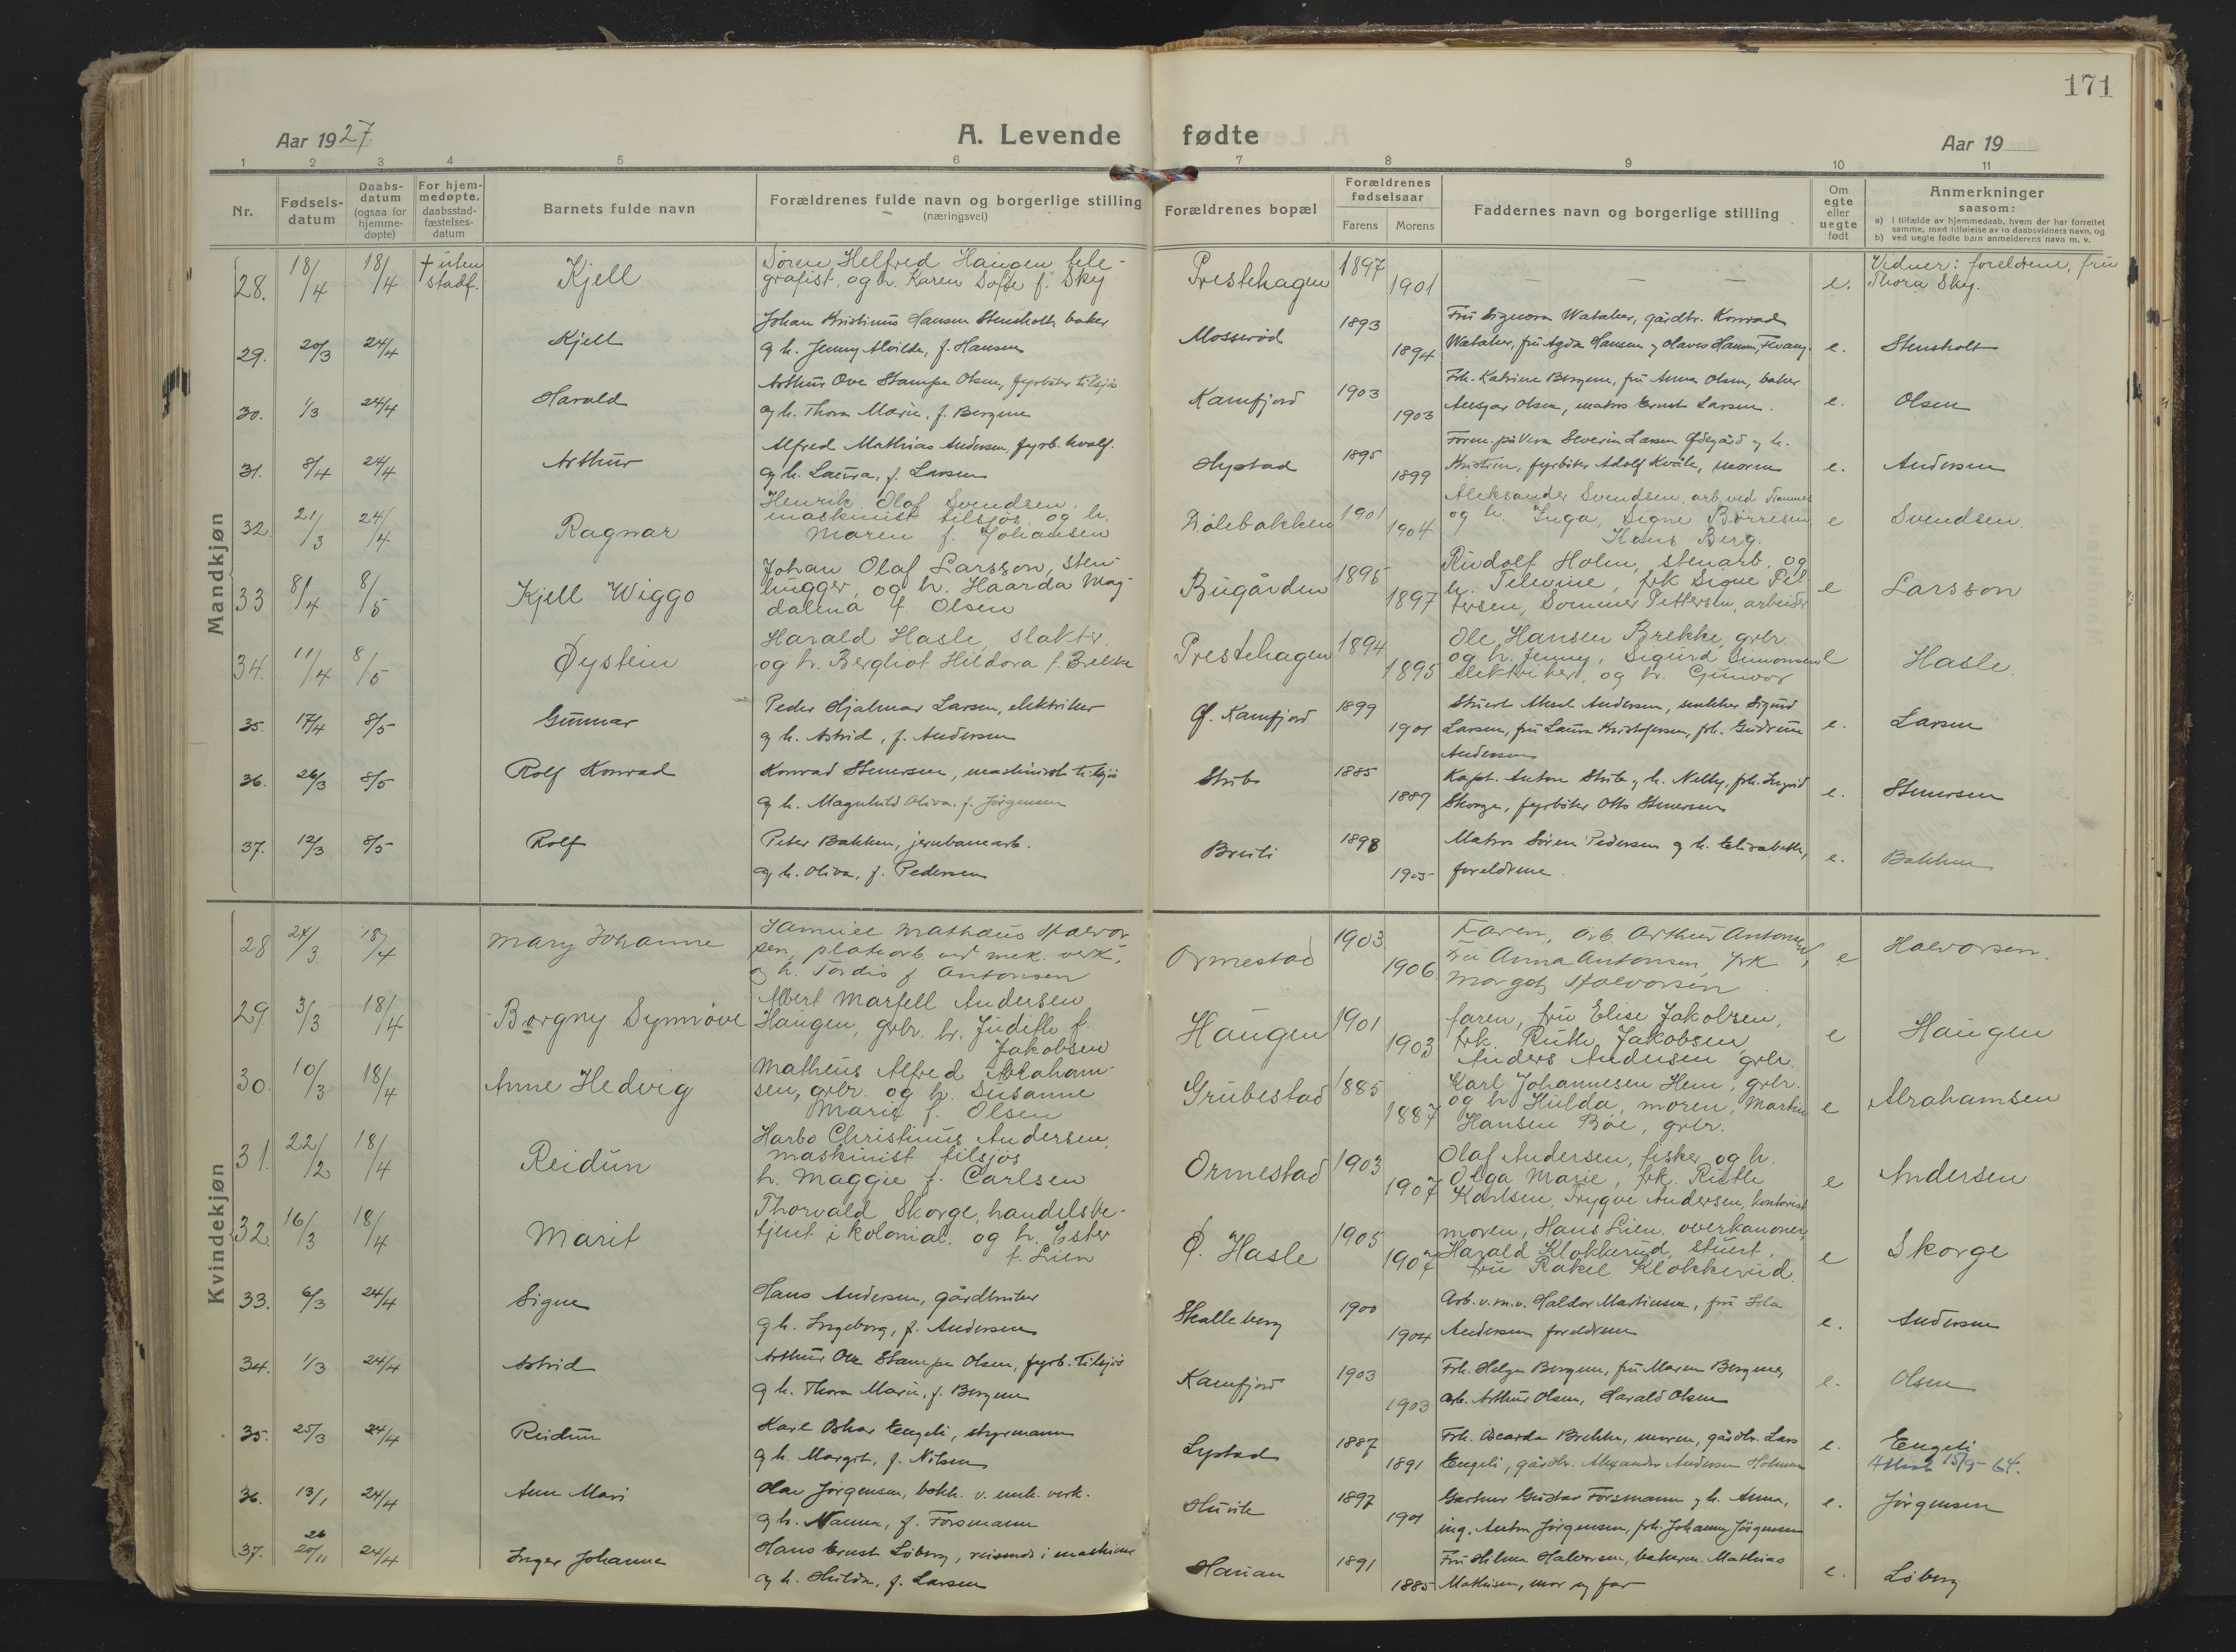 171
Aar 1927
A. Levende fødte
Aar 19
1 2 3 4 5 6 7 8 9 10 11
Nr.
Fødsels-
datum
Daabs-
datum
(ogsaa for
hjemme-
døpte)
For hjem-
medøpte,
daabsstad-
fæstelses-
datum
Barnets fulde navn
Forældrenes fulde navn og borgerlige stilling
(næringsvei)
Forældrenes bopæl
Forældrenes
fødselsaar
Farens Morens
Faddernes navn og borgerlige stilling
Om
egte
eller
uegte
født
Anmerkninger
saasom:
a) i tilfælde av hjemmedaab, hvem der har forrettet
samme, med tilføielse av to daabsvidners navn, og
b) ved uegte fødte barn anmelderens navn m. v.
Mandkjøn
28. 18/4 18/4 † uten stadf. Kjell
Søren Helfred Haugen, tele-
grafist, og h. Karen Sofie f. Sky
Prestehagen 1897 1901 — — — e.
Vidner: foreldrene, fru
Thora Sky.
29. 20/3 24/4 Kjell
Johan Kristinus Hansen Stensholt, baker
og h. Jenny Alvilde, f. Hansen
Mosserød 1893 1894
Fru Signora Wataker, gårdbr. Konrad
Wataker, fru Agda Hansen og Olaves Hansen, e. Stensholt
30. 1/3 24/4 Harald
Arthur Ove Stampe Olsen, fyrbøter tilsjøs
og h. Thora Marie, f. Bergene
Kamfjord 1903 1903
Frk. Katrine Bergene, fru Anna Olsen, baker
Ansgar Olsen, matros Ernst Larsen. e. Olsen
31. 8/4 24/4 Arthur
Alfred Mathias Andersen, fyrb. hvalf.
og h. Laura, f. Larsen
Hystad 1895 1899
Form. på Vera Severin Larsen Ødegård og h.
Kristine, fyrbøter Adolf Kvåle, moren e. Andersen
32. 21/3 24/4 Ragnar
Henrik Olaf Svendsen,
maskinist tilsjøs, og h.
Maren f. Johansen
Dølebakken 1901 1904
Aleksander Svendsen, arb. ved Framnes
og h. Inga, Signe Børresen
Hans Berg. e Svendsen.
33 8/4 8/5 Kjell Wiggo
Johan Olaf Larsson, sten-
hugger, og h. Haarda Mag-
dalena f. Olsen
Bugården 1895 1897
Rudolf Holm, stenarb. og
h. Televine, frk Signe Pet-
tersen, Sommer Pettersen, arbeider e Larsson
34. 11/4 8/5 Øystein
Harald Hasle, slakter.
og h. Bergliot Hildora f. Brekke
Prestehagen 1894 1895
Ole Hansen Brekke, grbr.
og h. Jenny, Sigurd Simonsen
elektriker, og h. Gunvor e Hasle.
35. 17/4 8/5 Gunnar
Peder Hjalmar Larsen, elektriker
og h. Astrid, f. Andersen
Ø. Kamfjord 1899 1901
Stuert Aksel Andersen, snekker Sigurd
Larsen, fru Laura Kristofersen, frk. Gudrun
Andersen e. Larsen
36. 26/3 8/5 Rolf Konrad
Konrad Stenersen, maskinist tilsjøs
og h. Magnhild Oliva, f. Jørgensen
Strib 1885 1889
Kapt. Anton Strib og h. Nelly, frk. Ingrid
Skorge, fyrbøter Otto Stenersen e. Stenersen
37. 12/3 8/5 Rolf
Peter Bakken, jernbanearb.
og h. Oliva, f. Pedersen
Breili 1898 1905
Matros Søren Pedersen og h. Elisabeth,
foreldrene. e. Bakken
Kvindekjøn
28 24/3 18/4 Mary Johanne
Samuel Mathæus Halvor
sen, platearb. ved mek. verk.,
og h. Tordis f. Antonsen
Ormestad 1903 1906
Faren, arb Arthur Antonsen,
Fru Anna Antonsen, frk
Margot Halvorsen. e Halvorsen.
29. 3/3 18/4 Borgny Synnøve
Albert Martell Andersen
Haugen, grbr. h. Judith f.
Jakobsen
Haugen 1901 1903
faren, fru Elise Jakobsen,
frk. Ruth Jakobsen
Anders Andersen grbr. e Haugen
30. 10/3 18/4 Anne Hedvig
Matheus Alfred Abraham-
sen, grbr. og h. Susanne
Marie f. Olsen
Grubestad 1885 1887
Karl Johannesen Hem, grbr.
og h Hulda, moren, Martin
Hansen Bøe, grbr. e Abrahamsen
31. 22/2 18/4 Reidun
Harbo Christinus Andersen,
maskinist tilsjøs
h. Maggie f. Carlsen
Ormestad 1903 1907
Olaf Andersen, fisker, og h.
Olga Marie, frk. Ruth
Karlsen, Trygve Andersen, kontorist e Andersen
32. 16/3 18/4 Marit
Thorvald Skorge, handelsbe-
tjent i kolonial, og h. Ester
f. Lien
Ø. Hasle 1905 1907
moren, Hans Lien, overkanoner,
Harald Klokkerud, stuert,
fru Rakel Klokkerud. e Skorge
33. 6/3 24/4 Signe
Hans Andersen, gårdbruker
og h. Ingeborg, f. Andersen
Skalleberg 1900 1904
Arb. v. m.v. Haldor Martinsen, fru Ida
Andersen foreldrene e. Andersen
34. 1/3 24/4 Astrid
Arthur Ove Stampe Olsen, fyrb. tilsjøs
og h. Thora Marie, f. Bergene
Kamfjord 1903 1903
Frk. Helga Bergene, fru Maren Bergene,
arb. Arthur Olsen, Harald Olsen e. Olsen
35. 25/3 24/4 Reidun
Karl Oskar Engeli, styrmann
og h. Margit, f. Nilsen
Lystad 1887 1891
Frk. Oscarda Brekke, moren, gårdbr. Lars
Engeli, gårdbr. Alexander Andersen Holmen e. Engeli
Attest 15/9-64.
36. 13/1 24/4 Ann Mari
Olav Jørgensen, bokh. v. mek. verk.
og h. Nanna, f. Forsmann
Huvik 1897 1901
Gartner Gustav Forsmann og h. Anna,
ing. Anton Jørgensen, frk. Johanne Jørgensen e. Jørgensen
37. 26 20/11 24/4 Inger Johanne
Hans Ernst Løberg, reisende i maskiner
og h. Hulda, f. Larsen
Hauan 1891 1885
Fru Hilma Halvorsen, bakerm. Mathias
Mathisen, mor og far e. Løberg